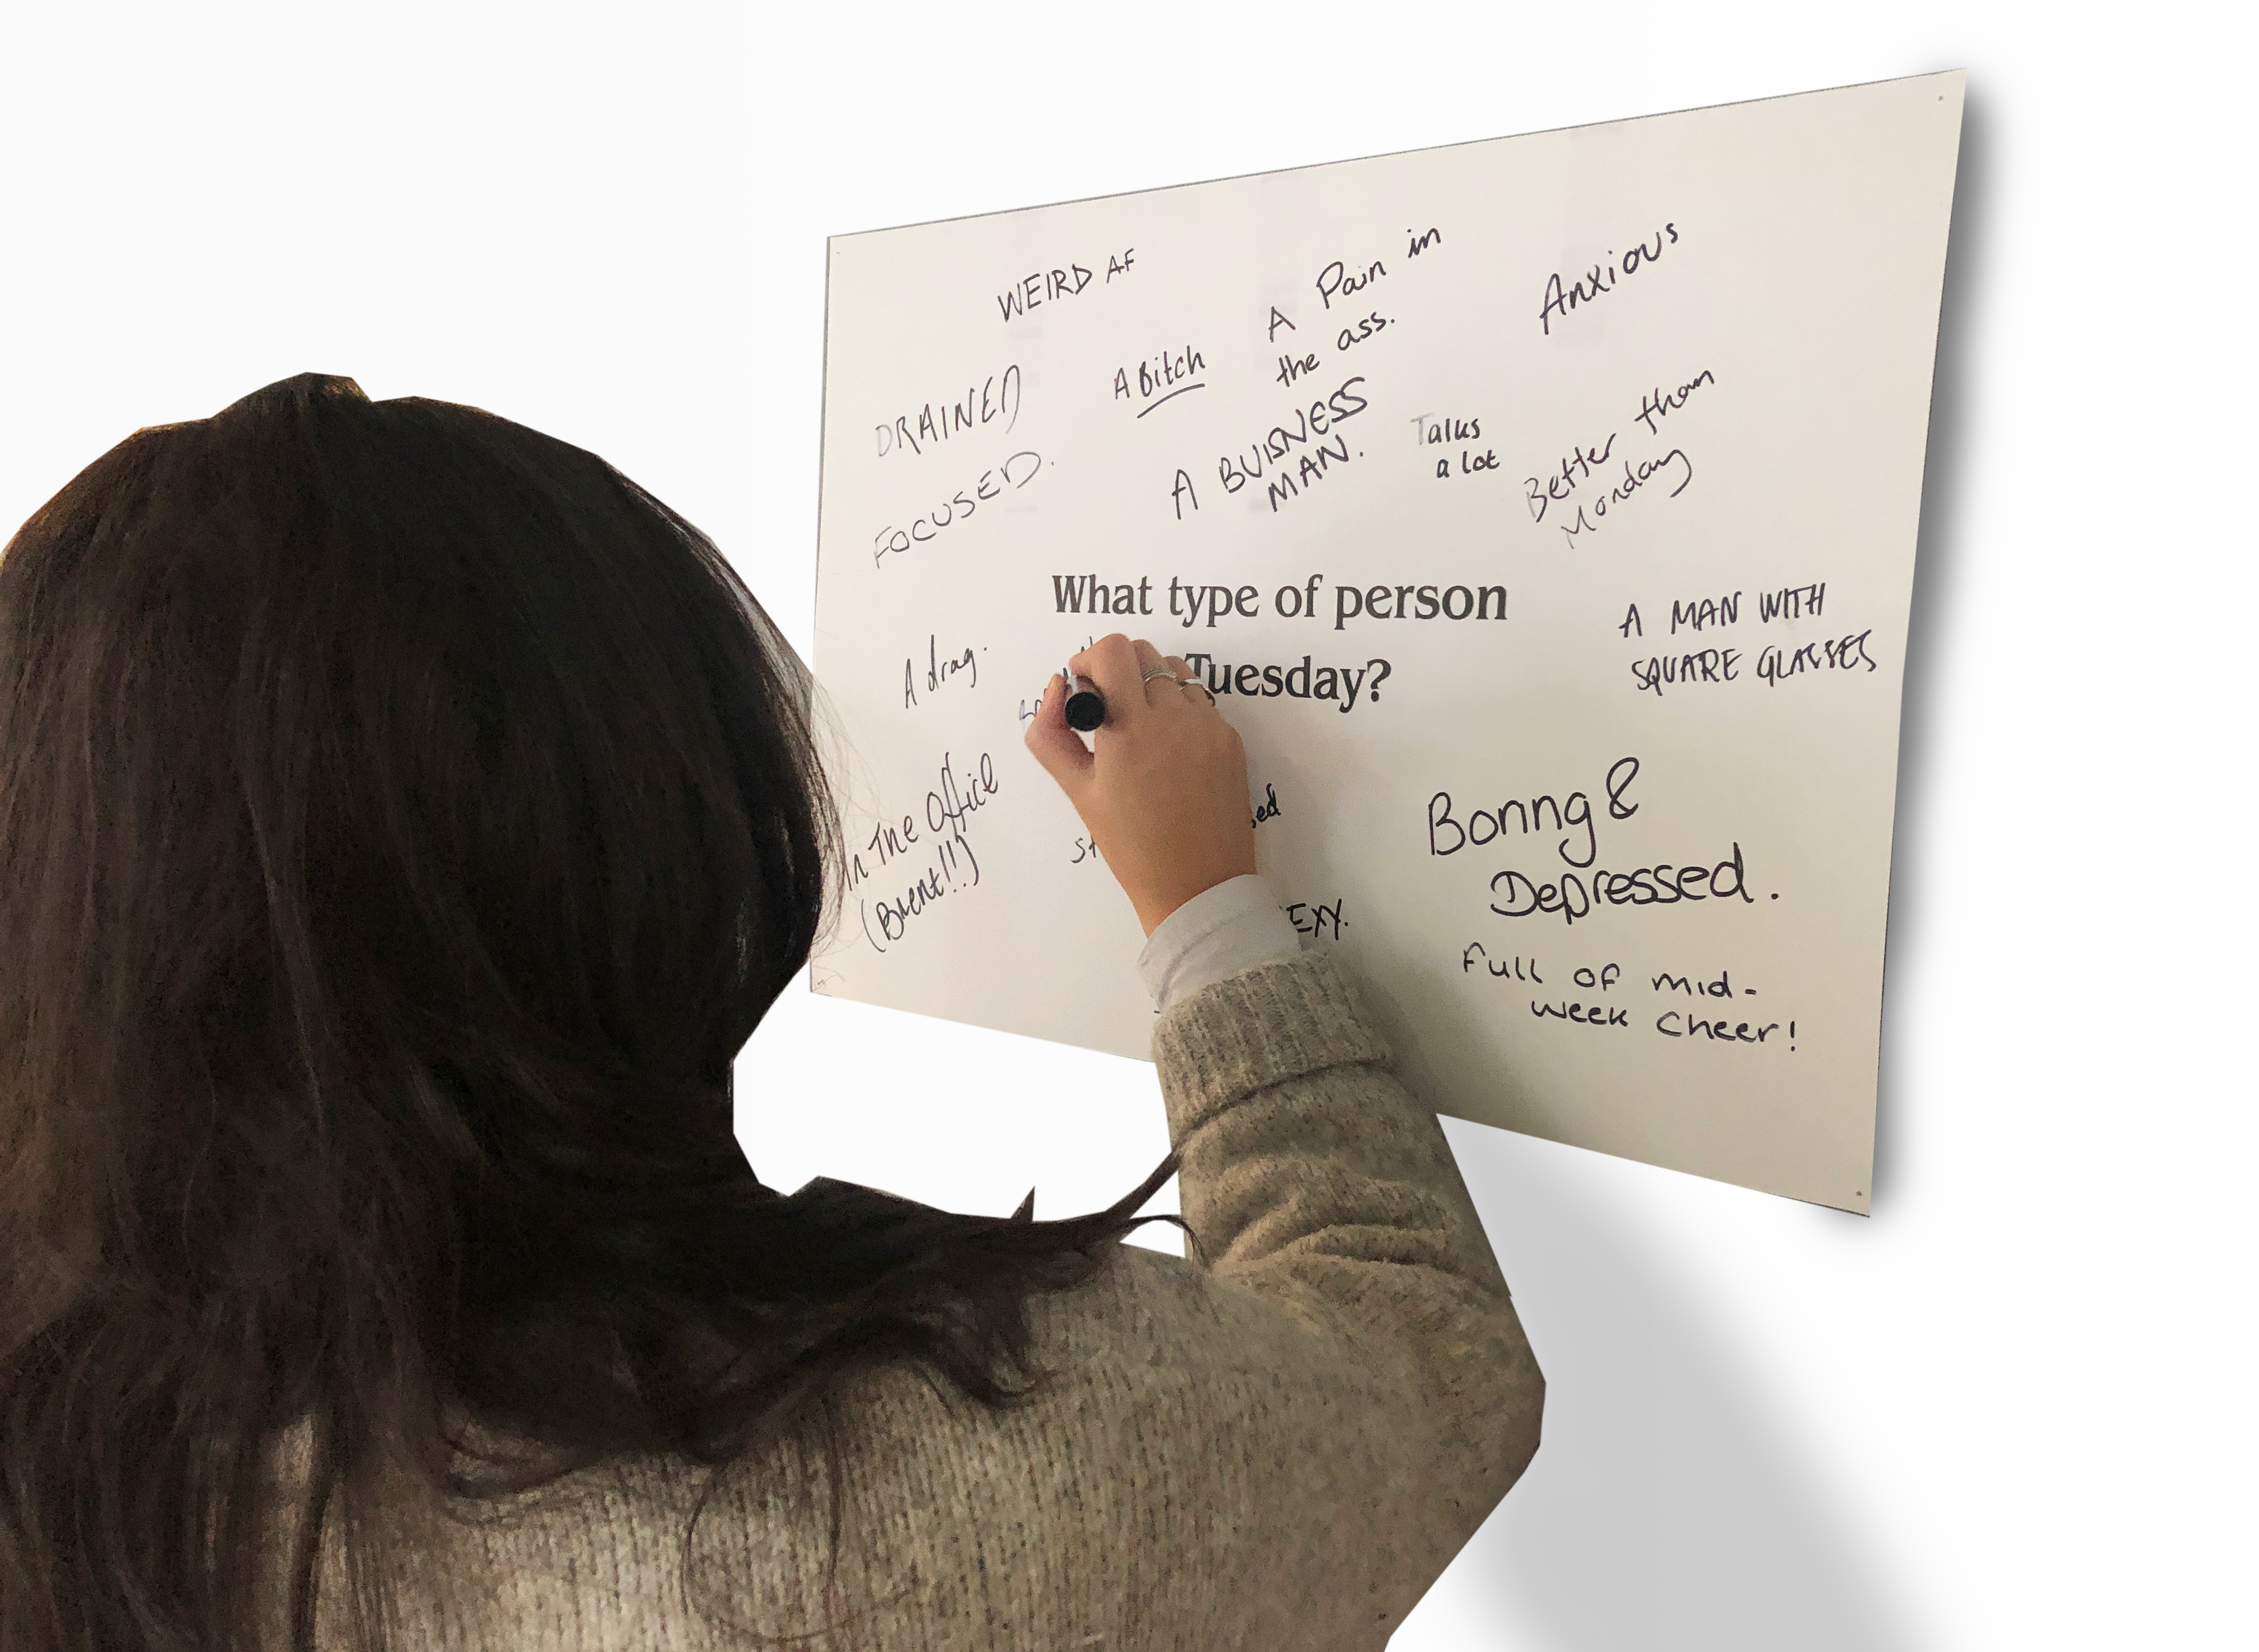 WEIRD AF
A Pain in
the ass.
Anxious
DRAINED
A Bitch
FOCUSED.
A BUISNESS
MAN.
Talks
a lot
Better than
Monday
What type of person
Tuesday?
A MAN WITH
SQUARE GLASSES
A drag.
In The Office
(Brent!!)
Boring &
Depressed.
Full of mid-
week cheer!